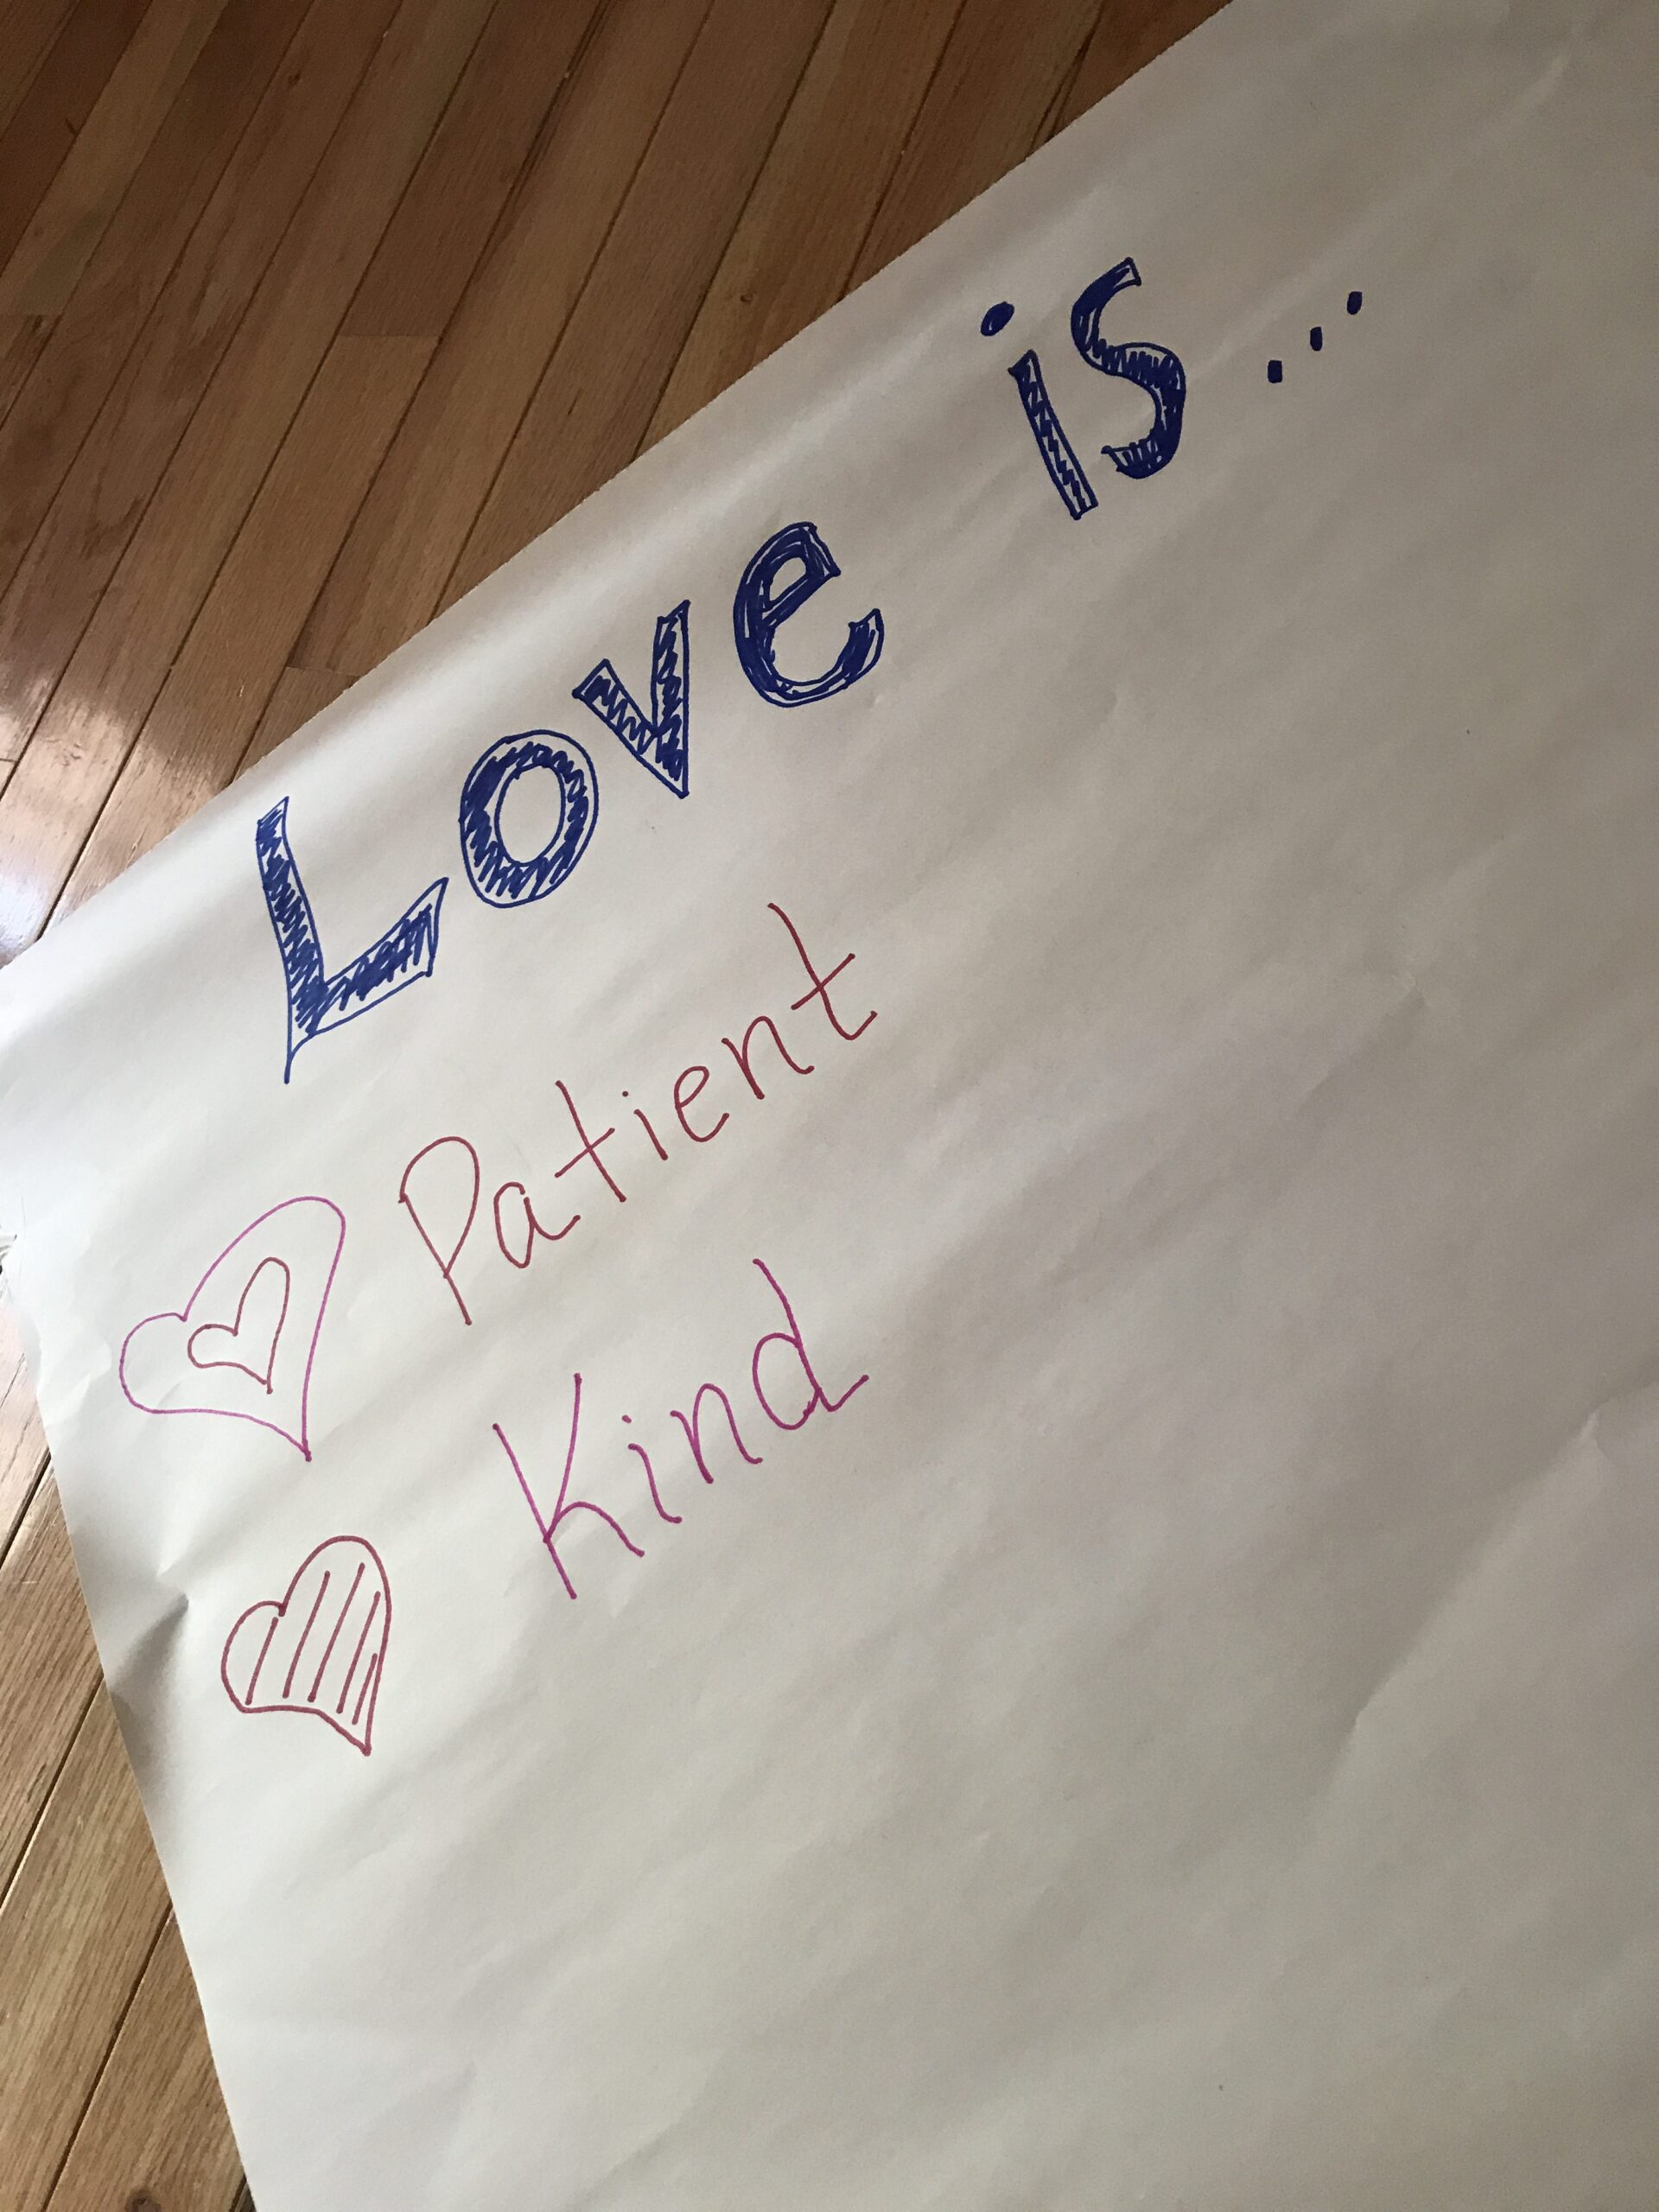 Love is...
Patient
Kind